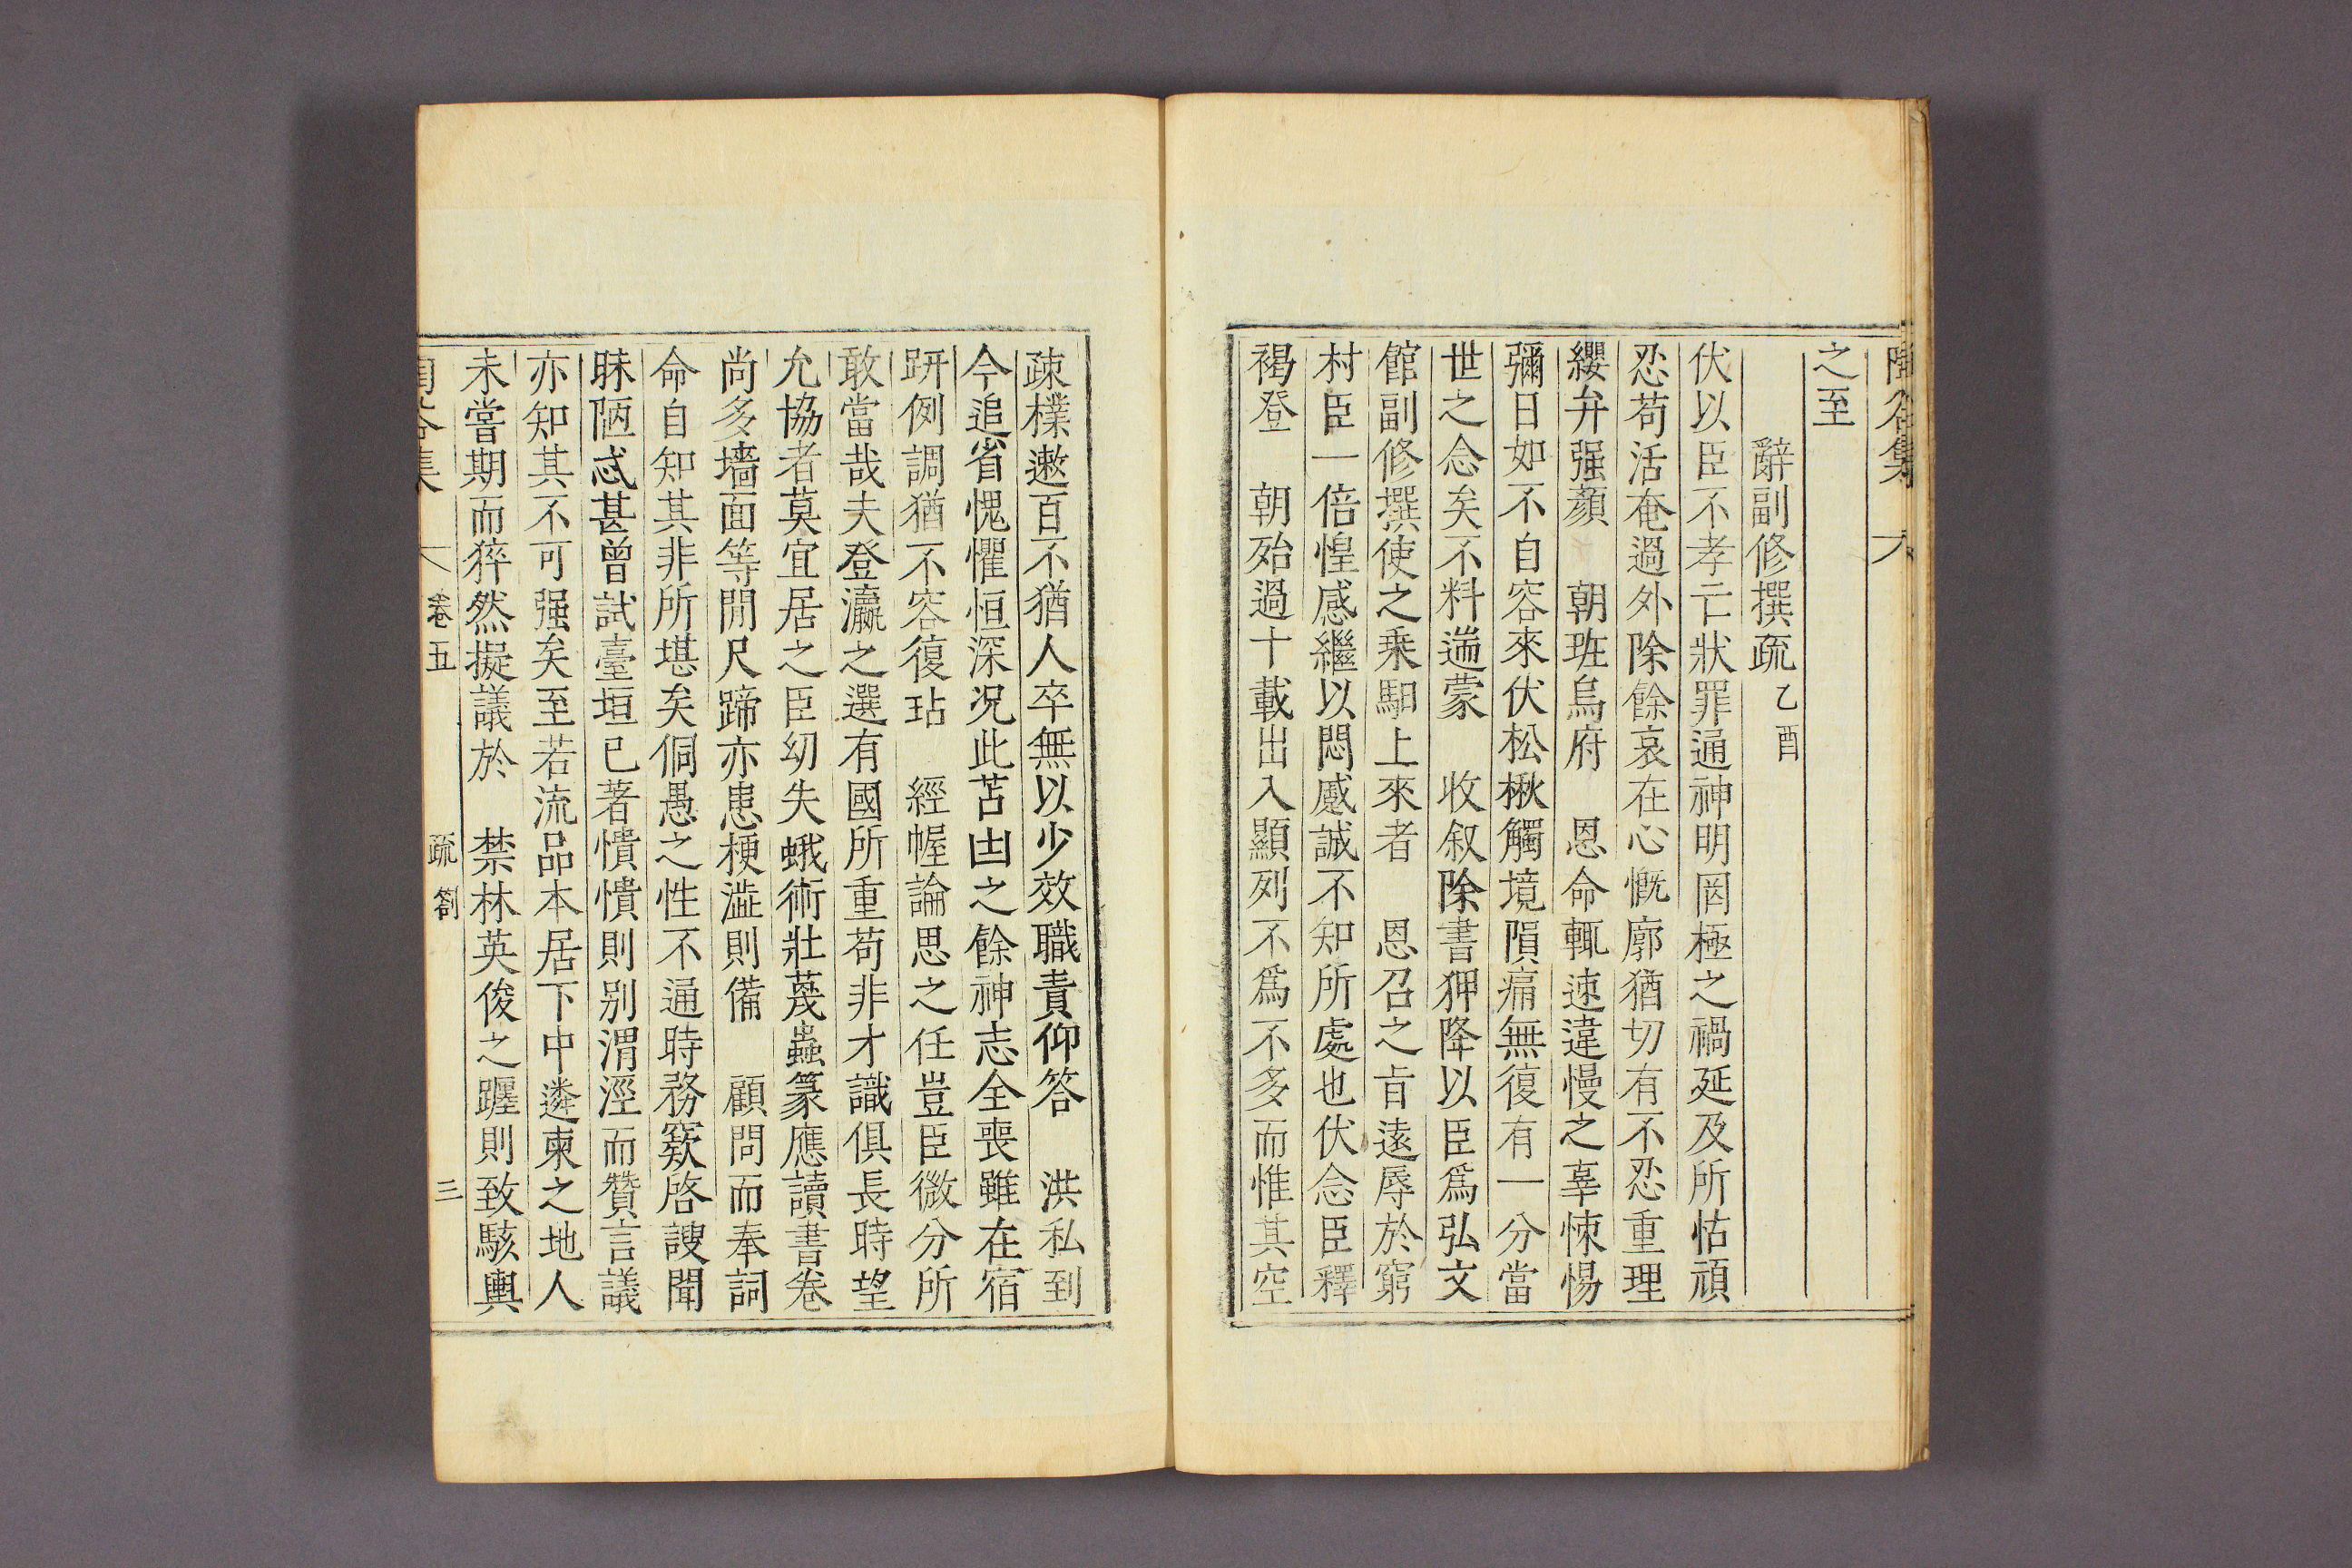 陶谷集
之至
辭副修撰疏 乙酉
伏以臣不孝亡狀罪通神明罔極之禍延及所怙頑
忍苟活奄過外除餘哀在心慨廓猶切有不忍重理
纓弁强顏 朝班烏府 恩命輒速違慢之辜悚惕
彌日如不自容來伏松楸觸境隕痛無復有一分當
世之念矣不料遄蒙 收叙除書狎降以臣爲弘文
館副修撰使之乗馹上來者 恩召之旨遠辱於窮
村臣一倍惶感繼以悶蹙誠不知所處也伏念臣釋
褐登 朝殆過十載出入顯列不爲不多而惟其空
疎樸遬百不猶人卒無以少效職責仰答 洪私到
今追省愧懼恒深况此苫凷之餘神志全喪雖在宿
趼例調猶不容復玷 經幄論思之任豈臣微分所
敢當哉夫登瀛之選有國所重苟非才識俱長時望
允協者莫宜居之臣幼失蛾術壯蔑蟲篆應讀書卷
尚多墻面等閒尺蹄亦患梗澁則備 顧問而奉詞
命自知其非所堪矣侗愚之性不通時務窾啓謏聞
昧陋忒甚曾試臺垣已著憒憒則別渭涇而贊言議
亦知其不可强矣至若流品本居下中遴柬之地人
未嘗期而猝然擬議於 禁林英俊之躔則致駭輿
陶谷集 卷五 疏劄 三